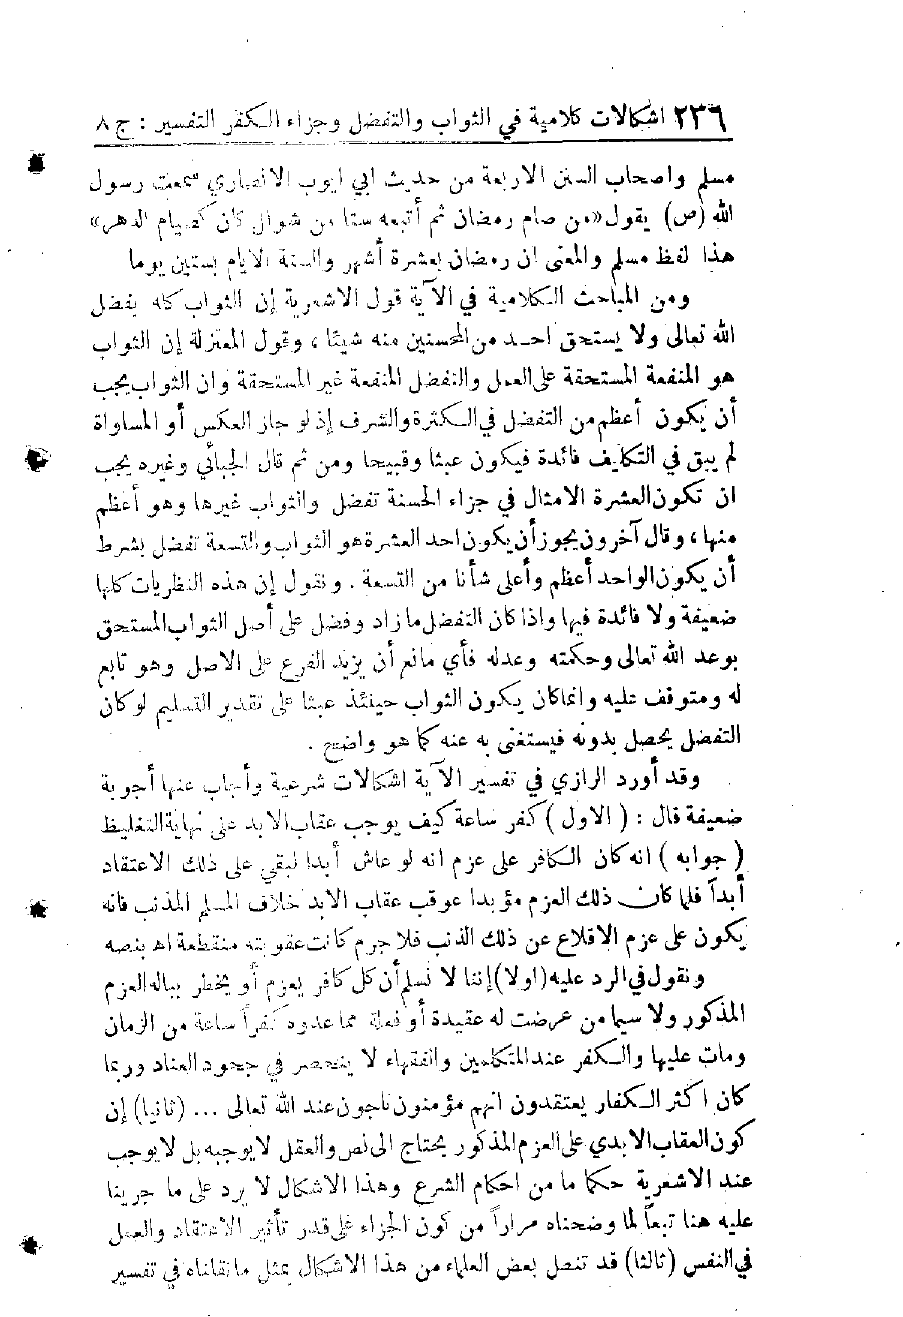 ٢٣٦ اشكالات كلامية في الثواب والتفضل وجزاء الكفر التفسير : ج ٨
مسلم واصحاب السنن الاربعة من حديث ابي ايوب الانصاري سمعت رسول
الله (ص) يقول «من صام رمضان ثم أتبعه ستا من شوال كان كصيام الدهر»
هذا لفظ مسلم والمعنى ان رمضان بعشرة أشهر والستة الايام بستين يوما
ومن المباحث الكلامية في الآية قول الاشعرية إن الثواب كله بفضل
الله تعالى ولا يستحق احد من المحسنين منه شيئا ، وقول المعتزلة إن الثواب
هو المنفعة المستحقة على العمل والتفضل المنفعة غير المستحقة وان الثواب يجب
أن يكون أعظم من التفضل في الكثرة والشرف إذ لو جاز العكس أو المساواة
لم يبق في التكليف فائدة فيكون عبثا وقبيحا ومن ثم قال الجبائي وغيره يجب
ان تكون العشرة الامثال في جزاء الحسنة تفضل والثواب غيرها وهو أعظم
منها ، وقال آخرون يجوز أن يكون احد العشرة هو الثواب والتسعة تفضل بشرط
أن يكون الواحد أعظم وأعلى شأنا من التسعة . ونقول إن هذه النظريات كلها
ضعيفة ولا فائدة فيها واذا كان التفضل ما زاد وفضل على أصل الثواب المستحق
بوعد الله تعالى وحكمته وعدله فأي مانع أن يزيد الفرع على الاصل وهو تابع
له ومتوقف عليه وانما كان يكون الثواب حينئذ عبثا على تقدير التسليم لو كان
التفضل يحصل بدونه فيستغنى به عنه كما هو واضح .
وقد أورد الرازي في تفسير الآية اشكالات شرعية وأجاب عنها أجوبة
ضعيفة قال : ( الاول ) كفر ساعة كيف يوجب عقاب الابد على نهاية التغليظ
( جوابه ) انه كان الكافر على عزم انه لو عاش أبدا لبقي على ذلك الاعتقاد
أبداً فلما كان ذلك العزم مؤبدا عوقب عقاب الابد خلاف المسلم المذنب فانه
يكون على عزم الاقلاع عن ذلك الذنب فلا جرم كانت عقوبته منقطعة اه بنصه
ونقول في الرد عليه (اولا) إننا لا نسلم أن كل كافر يعزم أو يخطر بباله العزم
المذكور ولا سيما من عرضت له عقيدة أو فعلة مما عدوه كفراً ساعة من الزمان
ومات عليها والكفر عند المتكلمين والفقهاء لا ينحصر في جحود العناد وربما
كان اكثر الكفار يعتقدون انهم مؤمنون ناجون عند الله تعالى ... (ثانيا) إن
كون العقاب الابدي على العزم المذكور يحتاج الى نص والعقل لا يوجبه بل لا يوجب
عند الاشعرية حكما ما من احكام الشرع وهذا الاشكال لا يرد على ما جرينا
عليه هنا تبعاً لما وضحناه مراراً من كون الجزاء على قدر تأثير الاعتقاد والعمل
في النفس (ثالثا) قد تنصل بعض العلماء من هذا الاشكال بمثل ما نقلناه في تفسير